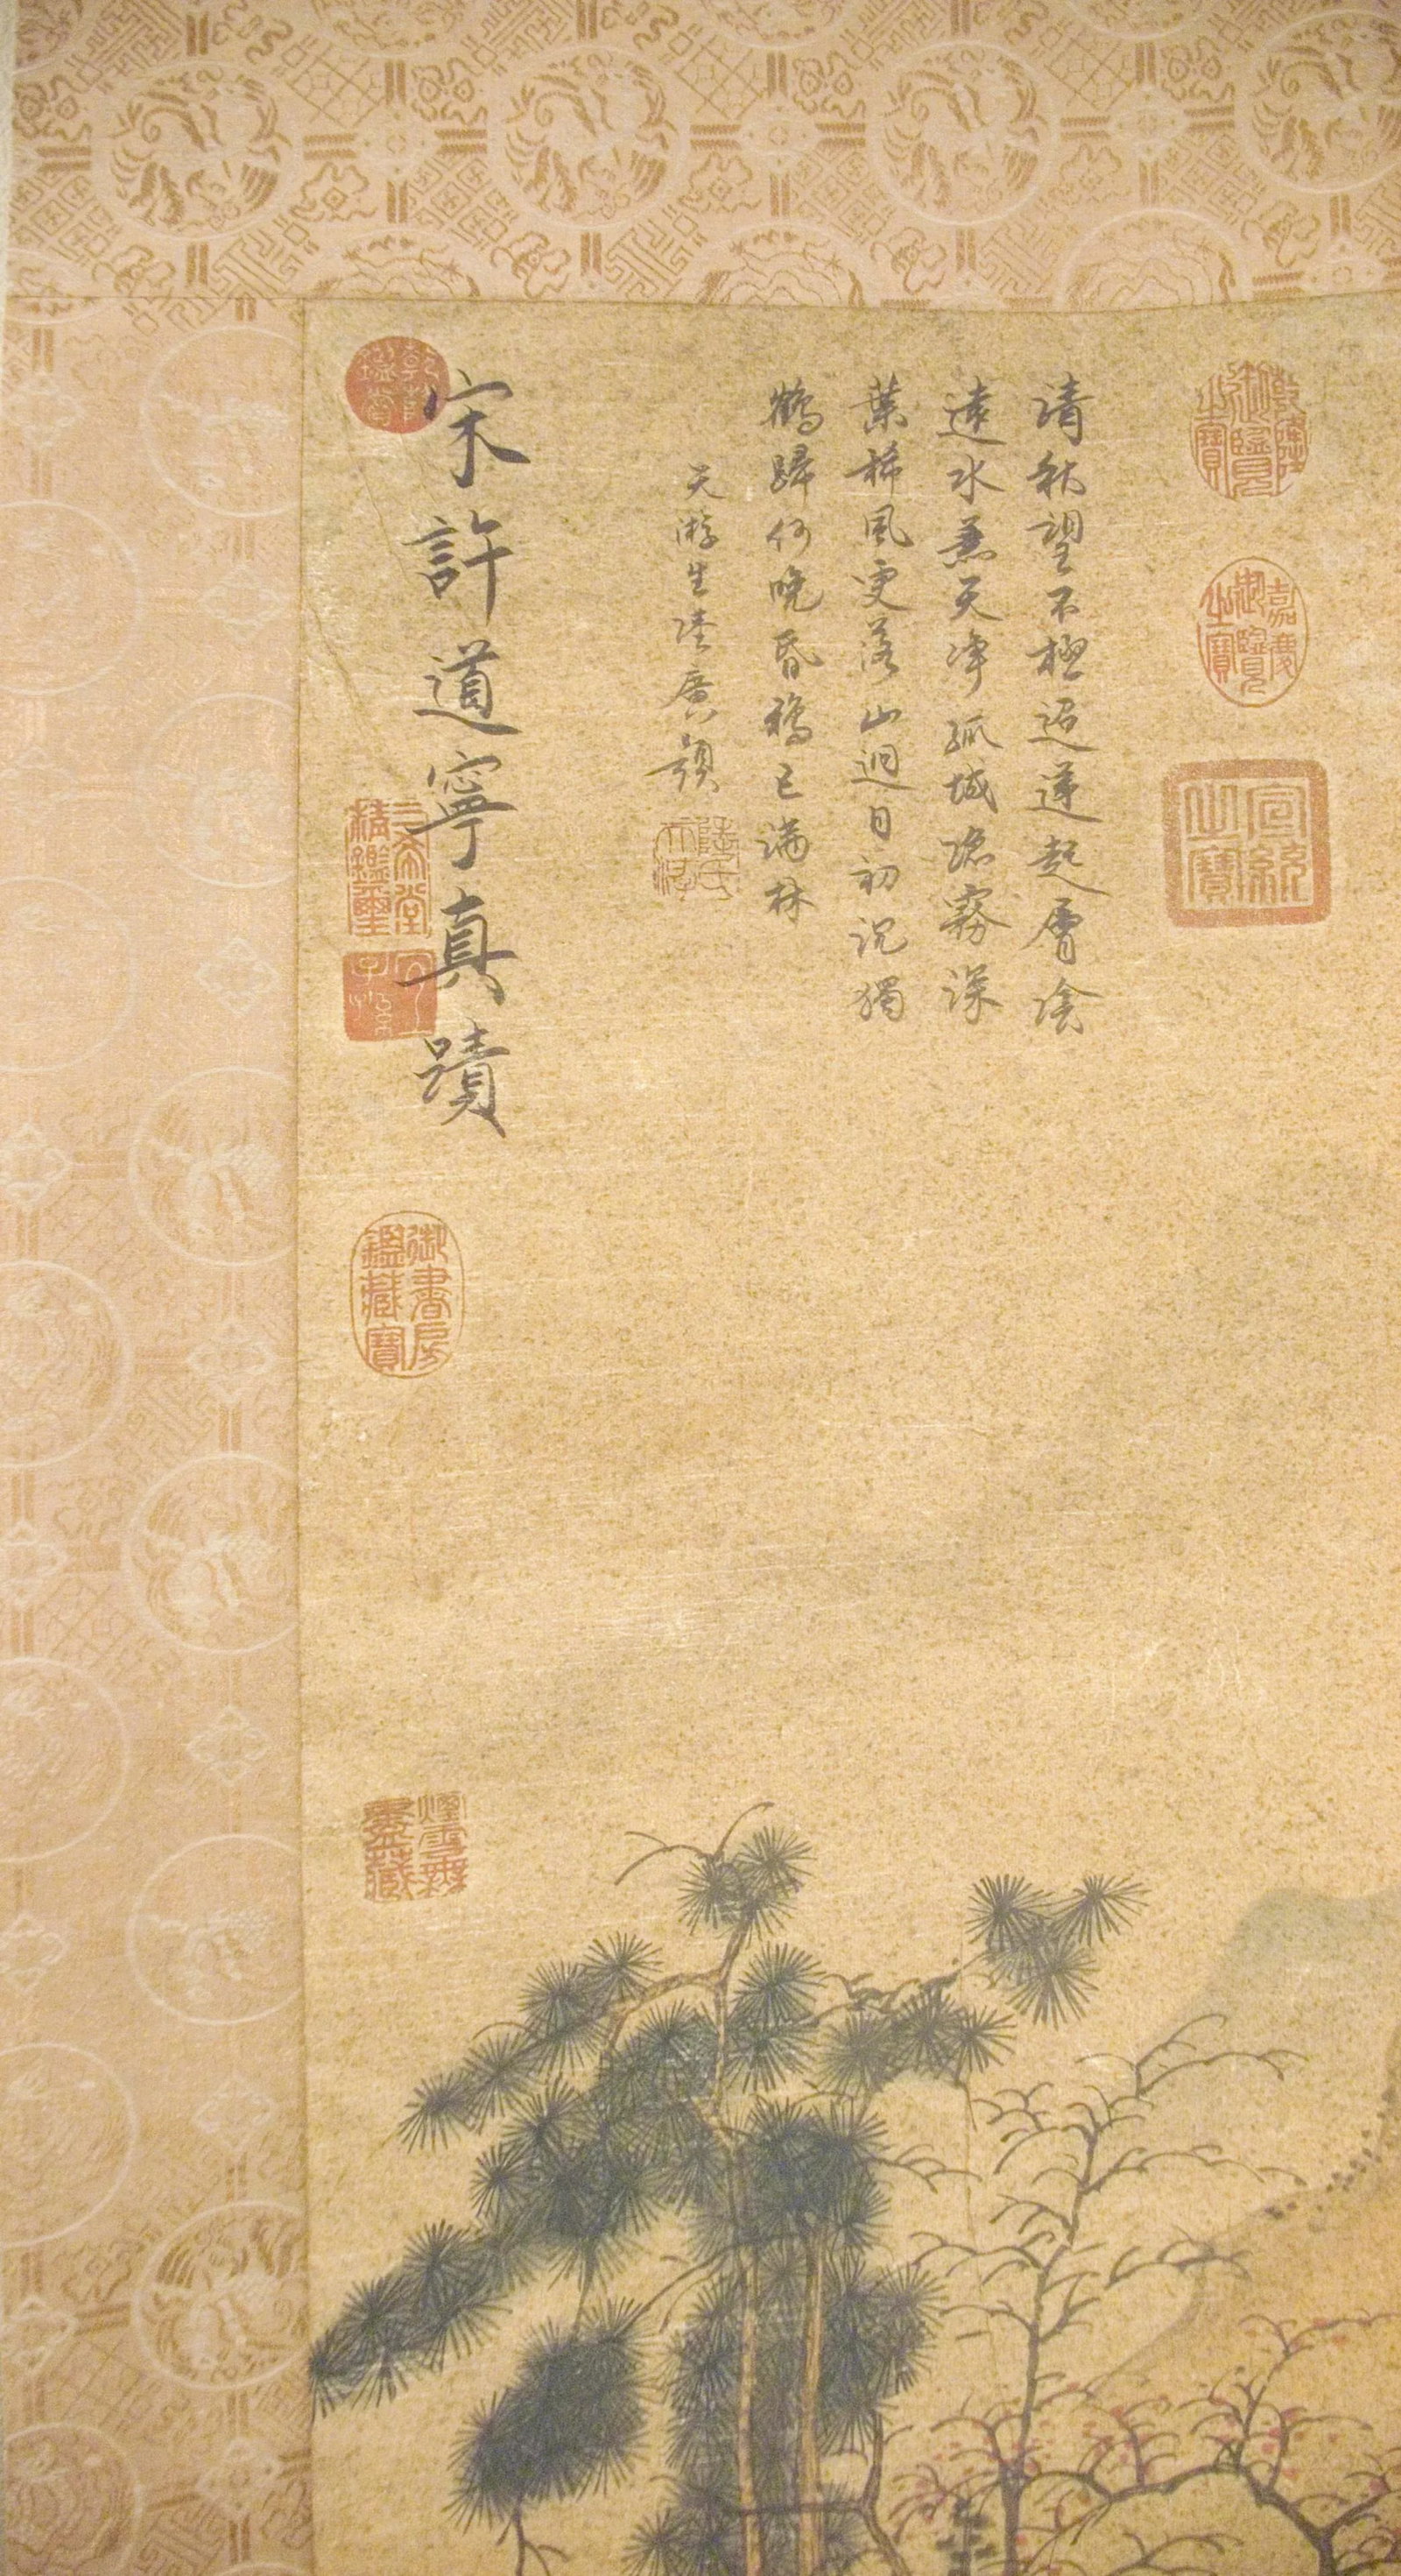 乾隆御覽之寶
嘉慶御覽之寶
宣統之寶
清秋望不極迢遞起層陰
遠水蒹天淨孤城隐霧深
葉稀風更落山迥日初沉獨
鶴歸何晚昏鴉已滿林
天游生陸廣題
陸氏
宋許道寧真蹟
乾隆鑑賞
三希堂精鑑璽
宜子孫
御書房鑑藏寶